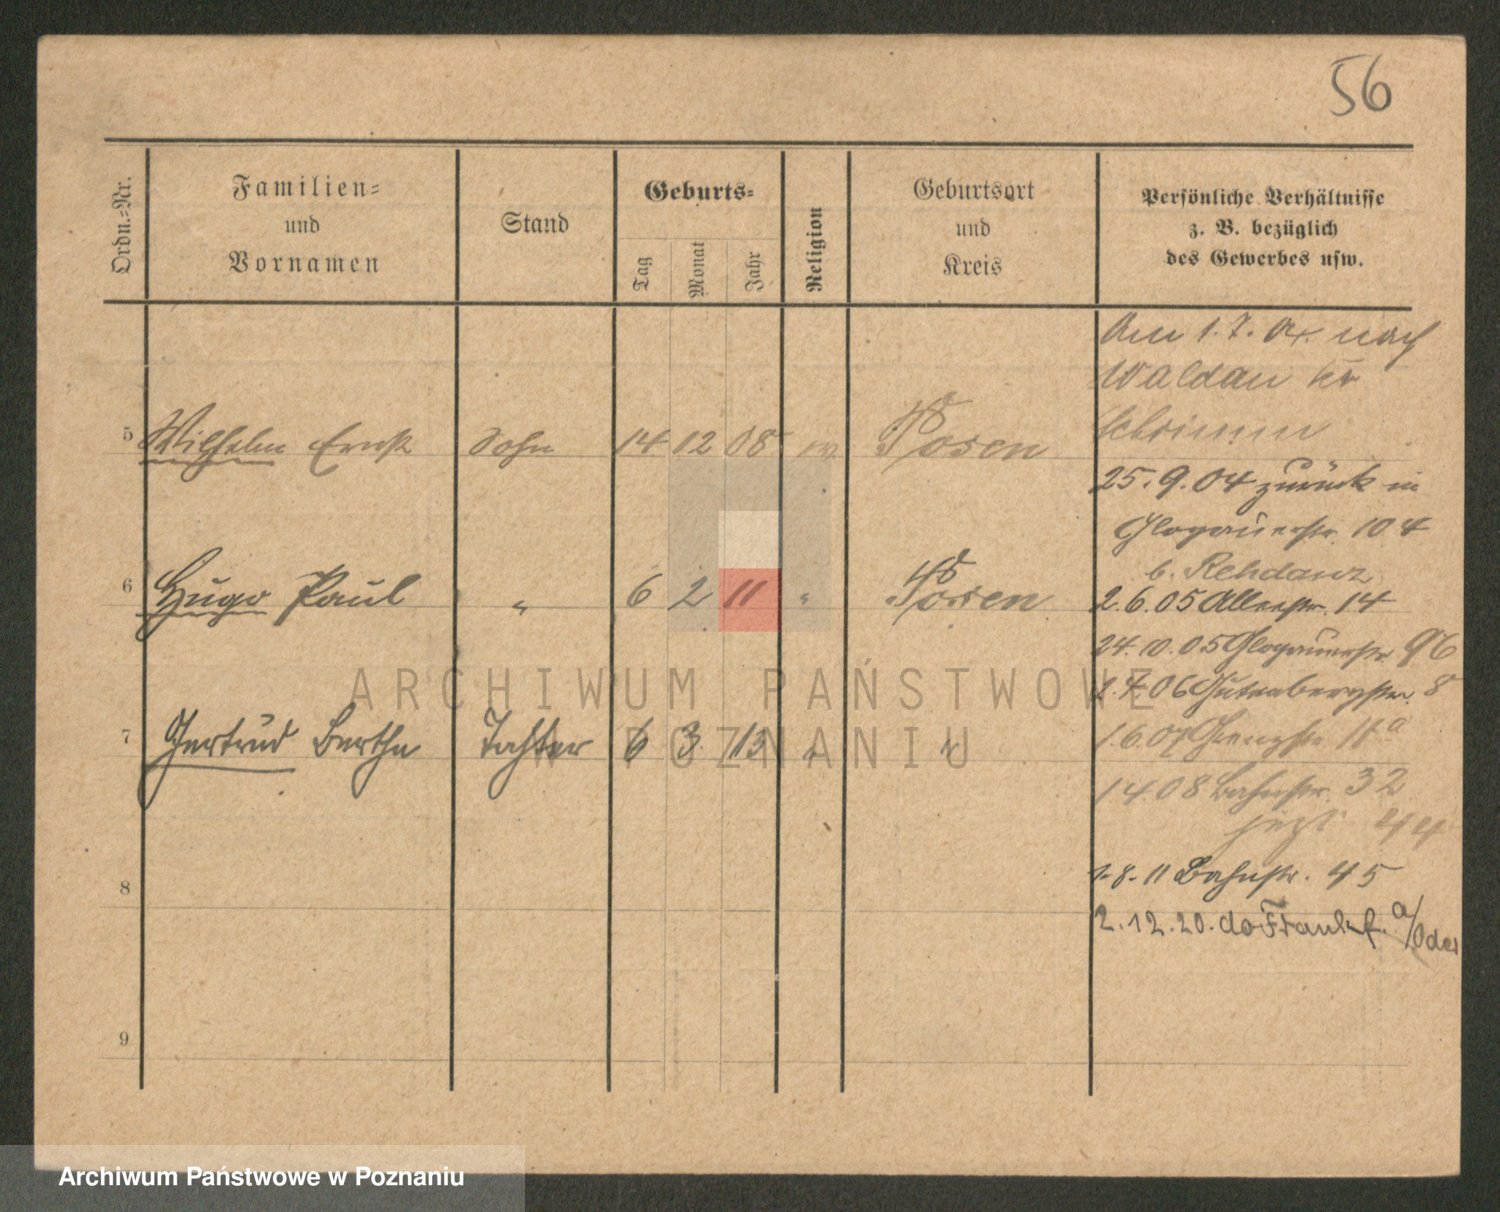 56
Ordn.-Nr.
Familien-
und
Vornamen
Stand
Geburts-
Tag
Monat
Jahr
Religion
Geburtsort
und
Kreis
Persönliche Verhältnisse
z. B. bezüglich
des Gewerbes usw.
Am 1.7. 04. nach
Waldau Kr
Schrimm
5 Wilhelm Ernst Sohn 14 12 08 Posen
25.9.04 zurück in
Glogauerstr. 104
b. Rehdanz
6 Hugo Paul " 6 2 11 " Posen
2.6.05 Alleestr. 14
24.10.05 Glogauerstr 96
2.4.06 Gutenbergstr. 8
7 Gertrud Bertha Tochter 6 3 13 " "
1.6.07 11a
1.4.08 Bahnstr. 32
jetzt 44
8
1.8.11 Bahnstr. 45
2.12.20. do Frankf. a/Oder
9
ARCHIWUM PAŃSTWOWE
W POZNANIU
Archiwum Państwowe w Poznaniu